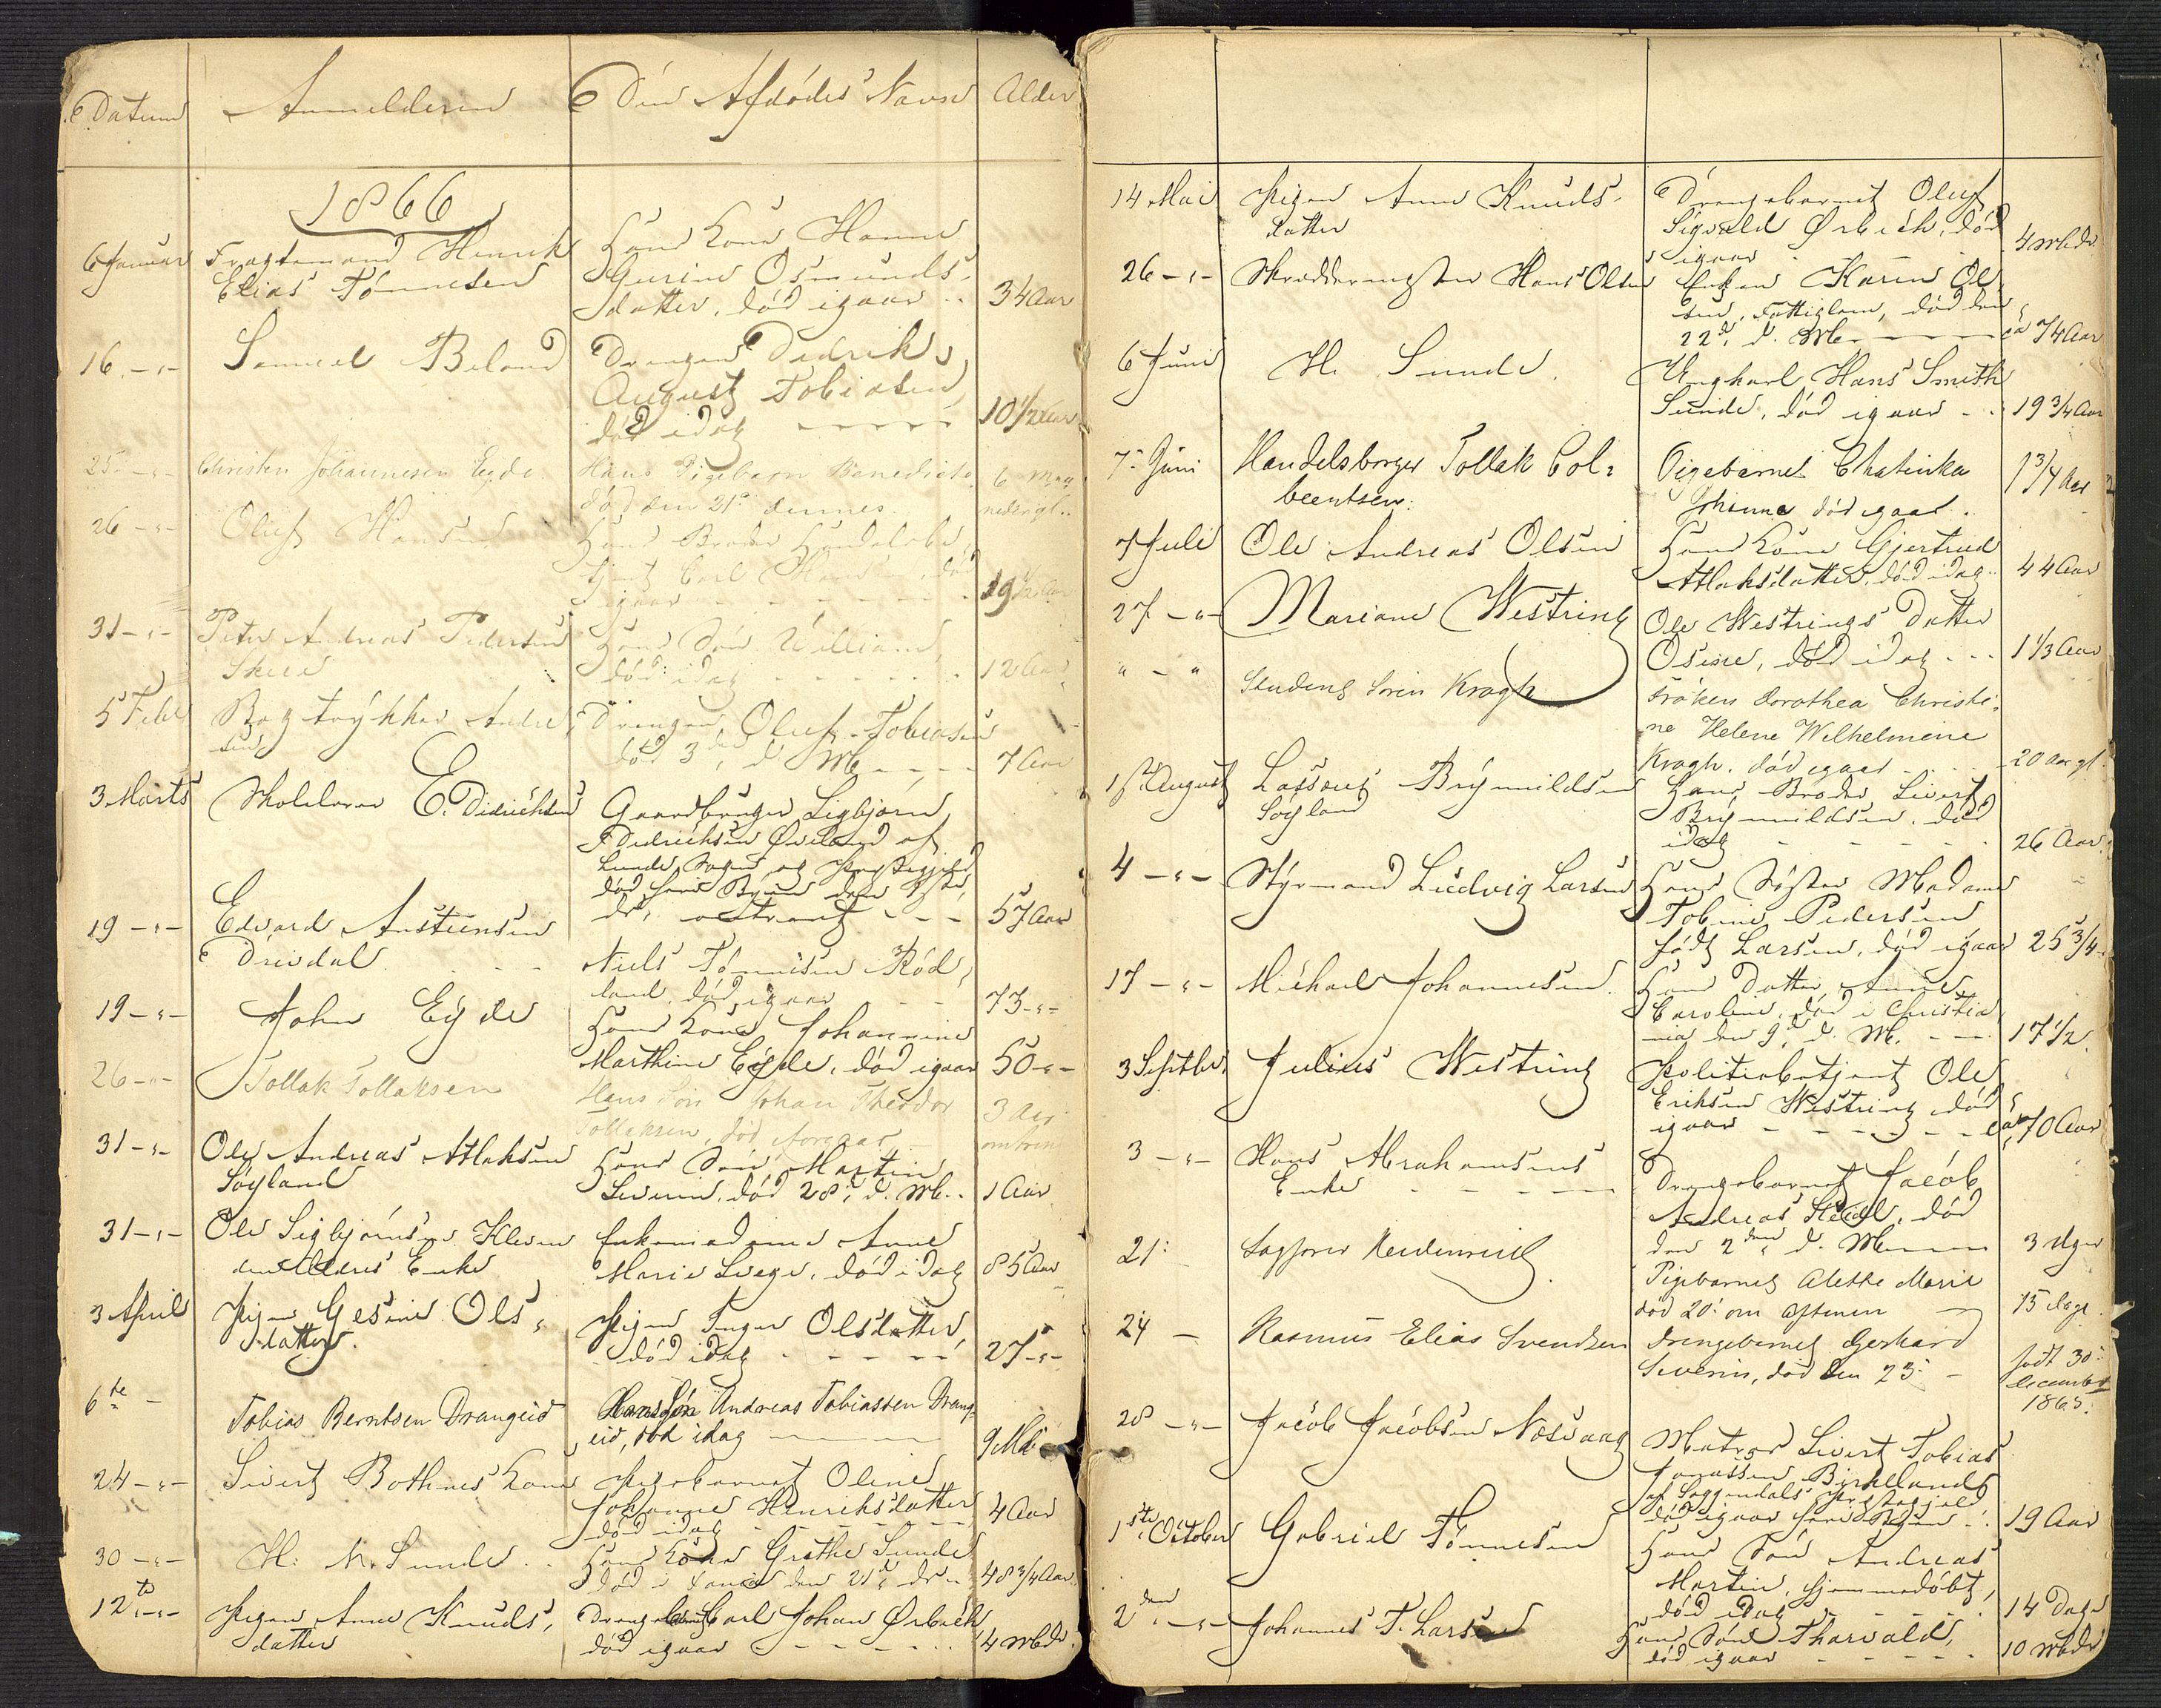 Datum Anmelderen Den Afdødes Navn Alder
1866
6 Januar Fragtemand Henrik Hans Kone Hanne
Elias Tönnesen Gurine Osmunds-
datter, död igaar 34 Aar
16 -"- Samuel Beland Drengen Didrik
August Tobiasen
död idag 10 1/2 Aar
25 -"- Christen Johannesen Eyde Hans Pigebarn Benedicte 6 Maa-
död den 21de dennes neder gl.
26 -"- Oluf Hansen Hans Broder Handelsbe-
tjent Carl Hansen, död
igaar 19 1/2 Aar
31 -"- Peter Andreas Pedersen Hans Sön William,
Skeie död idag 12 Aar
5 Febr Bogtrykker Andre- Drengen Oluf Tobiasen
sen död 3de d. M. 7 Aar
3 Marts Skolelærer E. Didriksen Gaardbruger Sigbjørn
Didriksen Øveland af
Lunde Sogn og Præstegjeld
død hers Byen den
ds. 57 Aar
19 -"- Edvard Austensen
Drivdal Niels Tönnesen Röd-
land, död igaar 73 -"-
19 -"- John Eyde Hans Kone Johannine
Marthine Eyde, död igaar 50 -"-
26 -"- Tollak Tollaksen Hans Sön Johan Theodor 3 Aar
Tollaksen, död iforgaar omtrent
31 -"- Ole Andreas Atlaksen Hans Sön Martin
Söyland Severin, död 28de d. M. 1 Aar
31 -"- Ole Sigbjörnsen Kleven Enkemadame Anne
den Ældres Enke Marie Svege, död idag 85 Aar
3 April Pigen Gesine Ols- Pigen Inger Olsdatter,
datter död idag 27 -"-
6te - Tobias Berntsen Drangeid Hans Sön Andreas Tobiassen Drang-
eid, död idag 9 Mdr
24 -"- Sivert Bothnes Kone Pigebarnet Oline
Johanne Henriksdatter
död idag 4 Aar
30 -"- H. M. Sunde Hans Kone Grethe Sunde
död i den 21de ds. 48 3/4 Aar
12te -"- Pigen Anne Knuds- Drengebarnet Carl Johan Ørbech
datter död igaar 4 Mdr.
14 Mai Pigen Anne Knuds- Drengebarnet Oluf
datter Sigvald Ørbech, död
igaar 4 Mdr
26 -"- Skræddermester Hans Olsen Enken Karen Ol-
sen, Fattiglem, död den
22de d. M. ca 74 Aar
6 Juni H. Sunde Ungkarl Hans Smith
Sunde, död igaar 19 3/4 Aar
7 Juni Handelsborger Tollak Col- Pigebarnet Chatinka 1 3/4 Aar
beentsen. Johanna död igaar.
7 Juli Ole Andreas Olsen Hans Kone Gjertrud
Atlaksdatter, död idag 44 Aar
27 -"- Mariane Westring Ole Westrings Datter
Osine, död idag 1 1/3 Aar
" - " Student Sören Kragh Fröken Dorothea Christi-
ne Helene Wilhelmine
Kragh, död igaar 20 Aar gl.
1ste August Lassert Brynnildsen Hans Broder Sivert
Söyland Brynnildsen, död
idag 26 Aar.
4 -"- Styrmand Ludvig Larsen Hans Söster Madame
Tobine Pedersen
födt Larsen, död igaar 25 3/4
17 -"- Michael Johannesen Hans Datter Anne
Caroline, död i Christia-
nia den 9de d. M. 17 1/2
3 Septbr. Julius Westring Politibetjent Ole
Eriksen Westring död
igaar ca 70 Aar
3 -"- Hans Abrahamsens Drengebarnet Jacob
Enke Andreas död
den 2den d. M. 3 Uger
21. Sagförer Heidenreich Pigebarnet Alethe Marie
död 20. om Aftenen 15 dage.
24 - Rasmus Elias Svendsen Drengebarnet Gerhard födt 30
Severin, död den 23. december
1865.
28 -"- Jacob Jacobsen Nesvaag Matros Sivert Tobias
Jonassen Birkeland
af Soggendals Præstegjeld
död igaar hers Byen 19 Aar
1ste October Gabriel Tönnesen Hans Sön Andreas
Martin, hjemmedöbt,
död idag 14 Dage
2den -"- Johannes T. Larsen Hans Sön Tharvald,
död igaar 10 Mdr